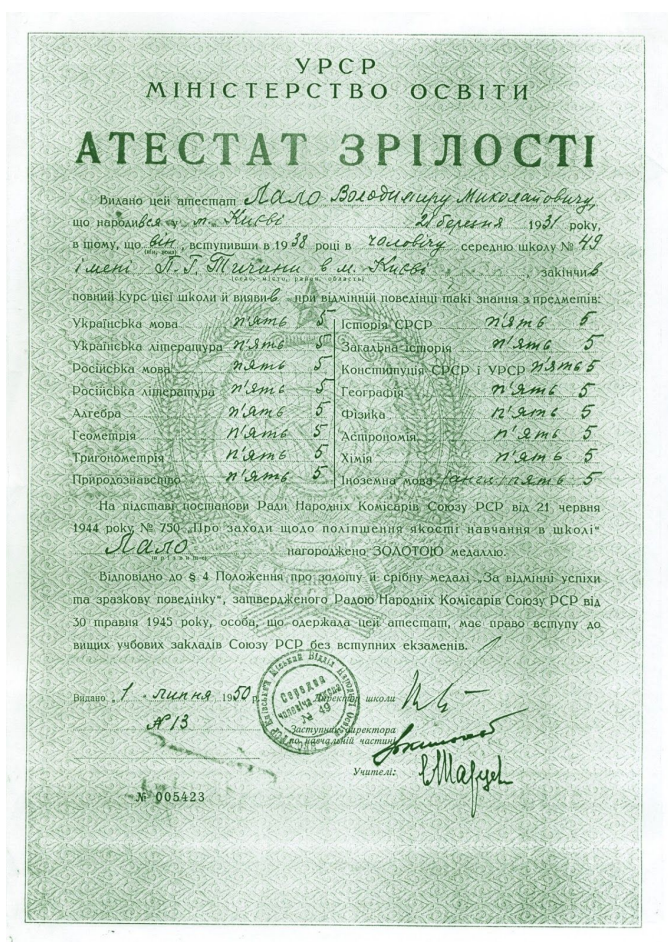 УРСР
МІНІСТЕРСТВО ОСВІТИ
АТЕСТАТ ЗРІЛОСТІ
Видано цей атестат Лало Володимиру Миколайовичу,
що народився у м. Києві 21 березня 1931 року,
в тому, що він, вступивши в 1938 році в чоловічу середню школу № 49
(він, вона)
імені П. Г. Тичини в м. Києві, закінчив
(село, місто, район, область)
повний курс цієї школи й виявив при відмінній поведінці такі знання з предметів:
Українська мова п'ять 5
Українська література п'ять 5
Російська мова пять 5
Російська література п'ять 5
Алгебра п'ять 5
Геометрія п'ять 5
Тригонометрія п'ять 5
Природознавство п'ять 5
Історія СРСР п'ять 5
Загальна історія п'ять 5
Конституція СРСР і УРСР п'ять 5
Географія п'ять 5
Фізика п'ять 5
Астрономія п'ять 5
Хімія п'ять 5
Іноземна мова (англ.) п'ять 5
На підставі постанови Ради Народніх Комісарів Союзу РСР від 21 червня
1944 року № 750 „Про заходи щодо поліпшення якості навчання в школі“
Лало нагороджено ЗОЛОТОЮ медаллю.
(прізвище)
Відповідно до § 4 Положення про золоту й срібну медалі „За відмінні успіхи
та зразкову поведінку“, затвердженого Радою Народніх Комісарів Союзу РСР від
30 травня 1945 року, особа, що одержала цей атестат, має право вступу до
вищих учбових закладів Союзу РСР без вступних екзаменів.
Видано 1 липня 1950 р.
Директор школи
№ 13
Заступник директора
по навчальній частині
Учителі:
Середня
чоловіча школа
№ 49
№ 005423